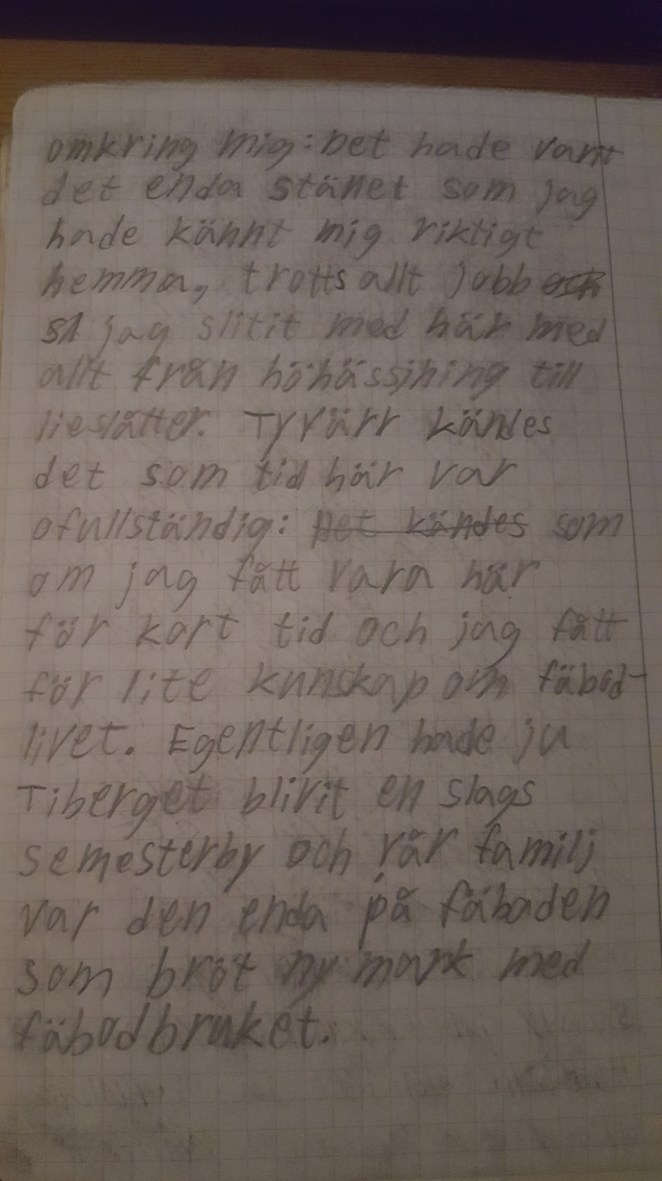 omkring mig: Det hade varit
det enda stället som jag
hade kännt mig riktigt
hemma, trotts allt jobb och
jag slitit med här med
allt från höhässjning till
lieslåtter. Tyvärr kändes
det som tid här var
ofullständig: Det kändes som
om jag fått vara här
för kort tid och jag fått
för lite kunskap om fäbod-
livet. Egentligen hade ju
Tiberget blivit en slags
semesterby och vår familj
var den enda på fäboden
som bröt ny mark med
fäbodbruket.